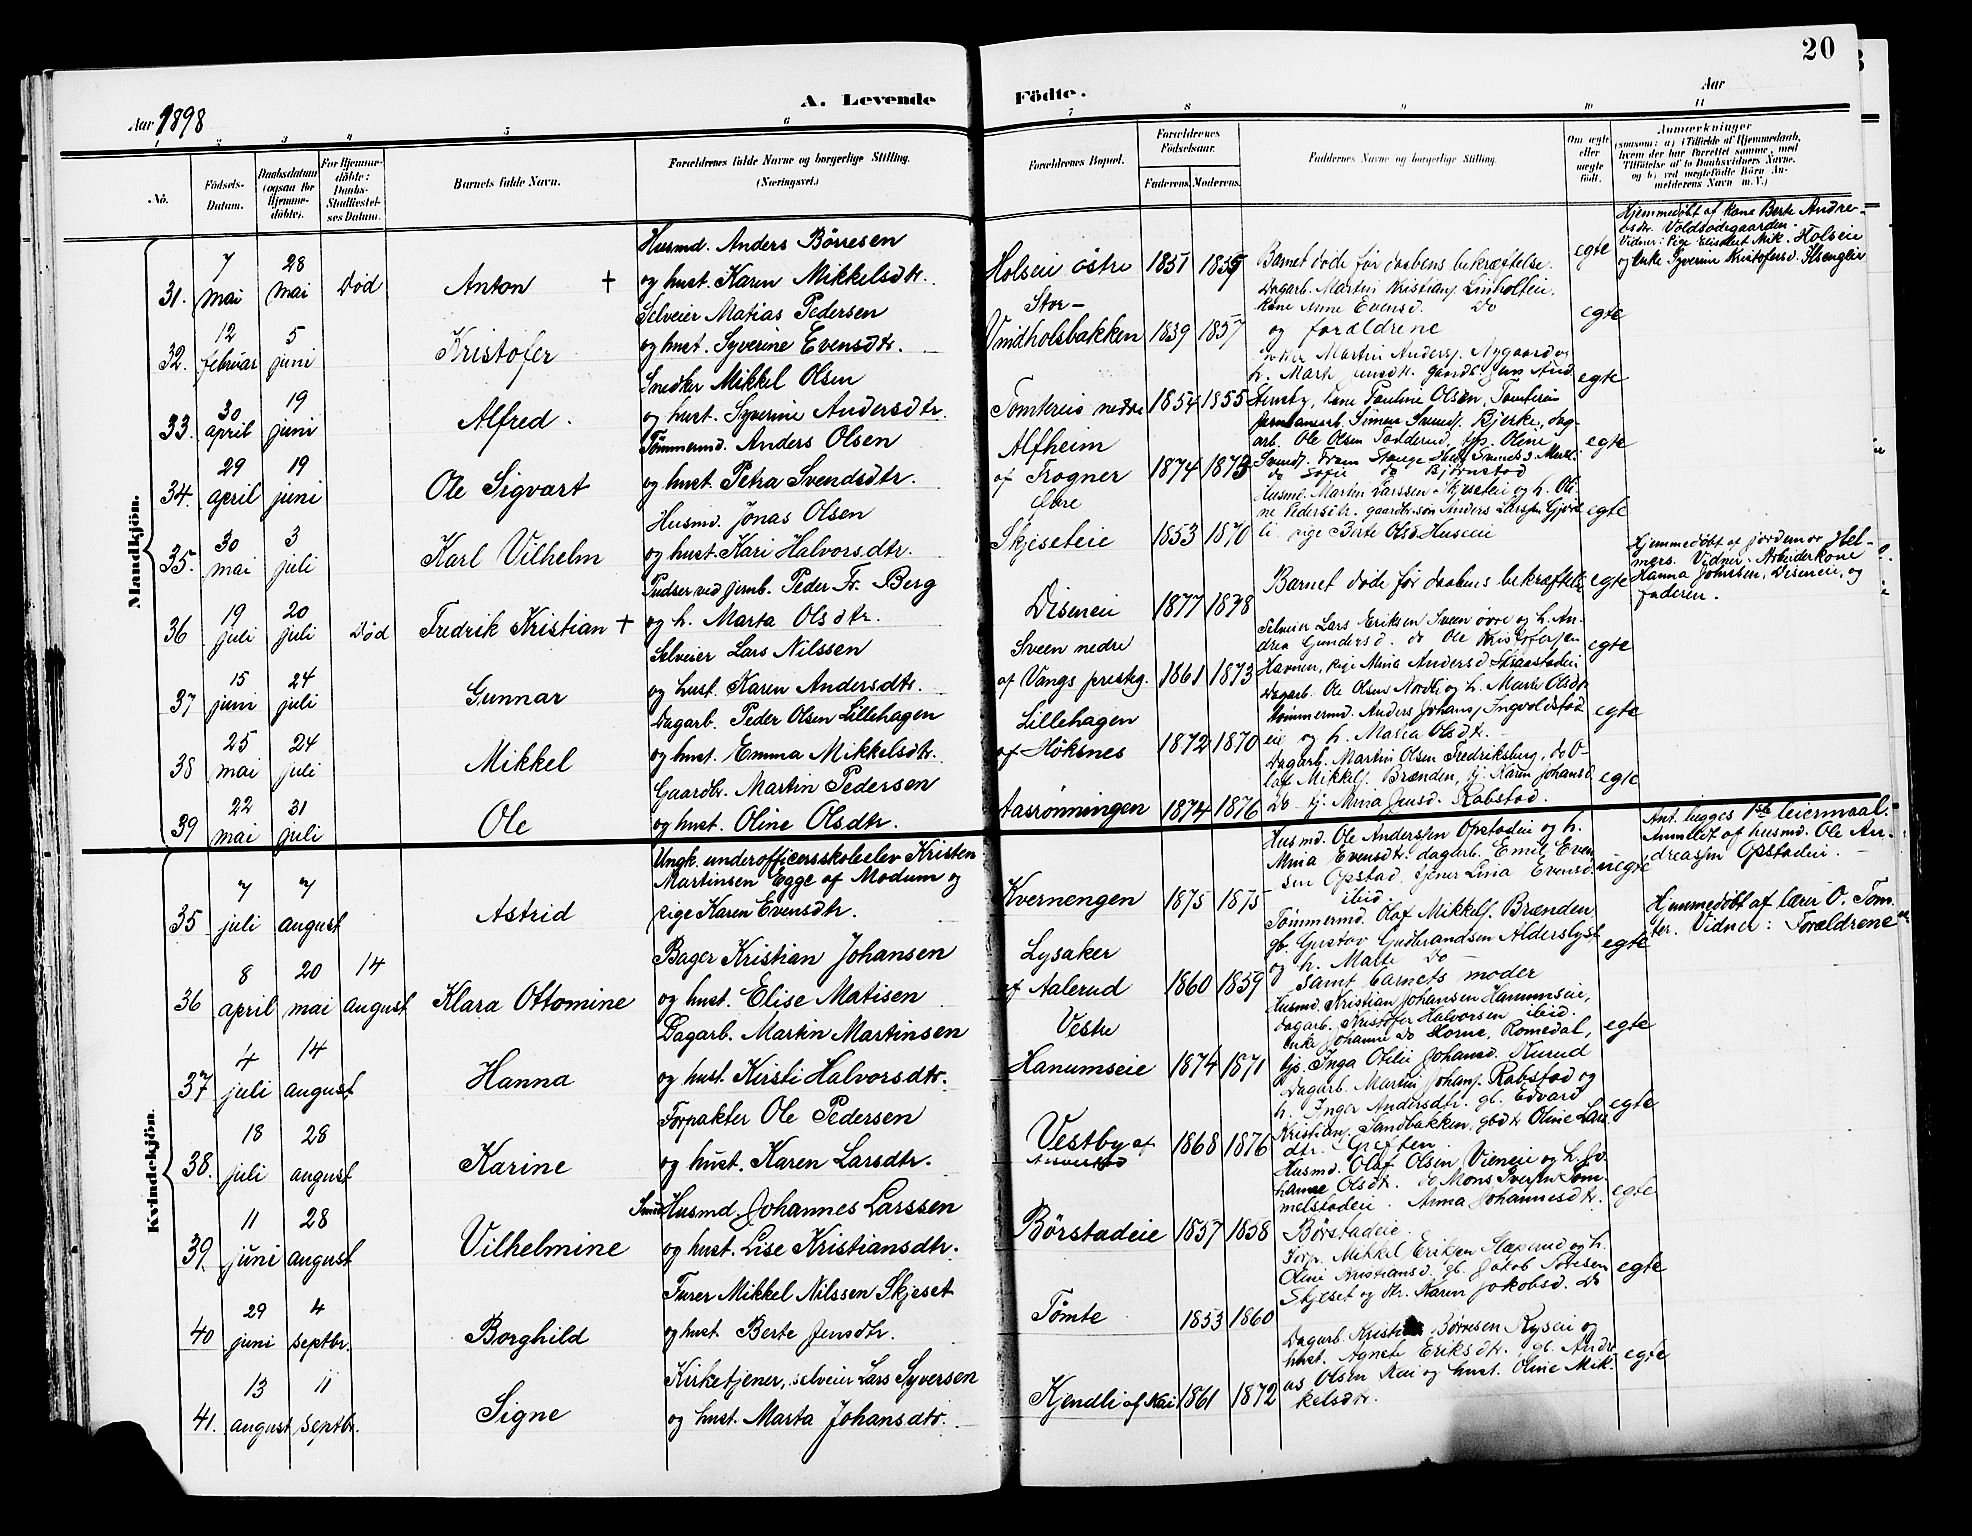 20
A. Levende Födte.
Aar 1898
Aar
1 2 3 4 5 6 7 8 9 10 11
Nô.
Födsels-Datum.
Daabsdatum (ogsaa for Hjemmedöbte).
For Hjemmedöbte: Daabs-Stadfæstelses Datum.
Barnets fulde Navn.
Forældrenes fulde Navne og borgerlige Stilling. (Næringsvei.)
Forældrenes Bopæl.
Forældrenes Födselsaar.
Faderens. Moderens.
Faddernes Navne og borgerlige Stilling.
Om ægte eller uægte födt.
Anmærkninger
(saasom: a) i Tilfælde af Hjemmedaab, hvem der har forrettet samme, med Tilföielse af to Daabsvidners Navne, og b) ved uægtefödte Börn Anmelderens Navn m.V.)
Mandkjön.
31. 7 mai 28 mai Död Anton +
Husmd. Anders Börresen
og hust. Karen Mikkelsdtr.
Holseie östre 1851 1859
Barnet döde för daabens bekræftelse.
egte
Hjemmedöbt af kone Berte Andre-
Vidner: Pige Elisabet Mik. Holseie
og enke Syverine Kristofersd.
32. 12 februar 5 juni Kristofer
Selveier Matias Pedersen
og hust. Syverine Evensdtr.
Stor-
Vindholsbakken 1839 1857
Dagarb. Martin Kristians. Linholteie.
kone Anne Evensd. Do
og forældrene
egte
33. 30 april 19 juni Alfred.
Snedker Mikkel Olsen
og hust. Syverine Andersdtr.
Tomtereie nedre 1854 1855
Martin Anders. Nygaard og
kone Pauline Olsen,
egte
34. 29 april 19 juni Ole Sigvart
Tömmermd. Anders Olsen
og hust. Petra Svendsdtr.
Alfheim
af Trogner 1874 1873
Simen Svends. Bjerke, dag-
arb. Ole Olsen Todderud,
egte
35. 30 mai 3 juli Karl Vilhelm
Husmd. Jonas Olsen
og hust. Kari Halvorsdtr.
Övre
Skjeseteie 1853 1870
Husmd. Martin Larssen Skjeseteie og h. Oli-
ne Pedersdtr. gaardbrsön Anders Larssen
pige Berte Olsd. Huseeie
egte
36 19 juli 20 juli Död Fredrik Kristian +
Pudser ved jernb. Peder Fr. Berg
og h. Marta Olsdtr.
Diseneie 1877 1838
Barnet döde för daabens bekræftelse
egte
Hjemmedöbt af jordemor Hel-
mers. Vidner: Arbeiderkone
Hanna Johnsen, Diseneie, og
faderen.
37 15 juni 24 juli Gunnar
Selveier Lars Nilssen
og hust. Karen Andersdtr.
Sveen nedre
af Vangs prestg. 1861 1873
Selveier Lars Eriksen Sveen övre og h. An-
drea Gundersd. do Ole Kristofersen
Havnen, pige Mina Andersd.
egte
38 25 mai 24 juli Mikkel
Dagarb. Peder Olsen Lillehagen
og hust. Emma Mikkelsdtr.
Lillehagen
af Höksnes 1872 1870
Dagarb. Ole Olsen Nordli og h. Marte Olsdtr
Tömmermd. Anders Johans. Ingvoldstad
eie og h. Maria Olsdtr.
egte
39 22 mai 31 juli Ole
Gaardbr. Martin Pedersen
og hust. Oline Olsdtr.
Aasrönningen 1874 1876
Dagarb. Martin Olsen Fredriksberg, do O-
laf Mikkels. Brænden, tj. Karen Johansd.
Do - tj. Mina Jensd. Rabstad.
egte
Kvindekjön.
35 7 juli 7 august Astrid
Ungk. underofficersskoleelev Kristen
Martinsen Egge af Modum og
pige Karen Evensdtr.
Kvernengen 1875 1875
Husmd. Ole Anderssen Opstadeie og h.
Mina Evensdtr. dagarb. Emil Even-
sen Opstad, tjener Lina Evensd.
ibid.
uegte
Ant. begges 1ste leiermaal.
Anmeldt af husmd. Ole An-
dreassen Opstadeie.
36 8 april 20 mai 14 august Klara Ottomine
Bager Kristian Johansen
og hust. Elise Matisen
Lysaker
af Aalerud 1860 1859
Tömmermd. Olaf Mikkels. Brænden
gb. Gustav Gudbrandsen Alderslyst
og h. Malte Do
samt barnets moder
egte
Hjemmedöbt af lærer O. Tom-
ter. Vidner: Forældrene
37 4 juli 14 august Hanna
Dagarb. Martin Martinsen
og hust. Kirsti Halvorsdtr.
Vestre
Hanumseie 1874 1871
Husmd. Kristian Johansen Hanumseie,
dagarb. Kristofer Halvorsen ibid.
enke Johanne Do Horne, Romedal,
tjs. Inga Otilie Johansd. Kurud
egte
38. 18 juli 28 august Karine
Forpakter Ole Pedersen
og hust. Karen Larsdtr.
Vestby af 1868 1876
Dagarb. Martin Johans. Rabstad og
h. Inger Andersdtr. gb. Edvard
Kristians. Sandbakken, gbdtr Oline Lars-
dtr. Greften
egte
39. 11 juni 28 august Vilhelmine
Husmd Johannes Larssen
og hust. Lise Kristiansdtr.
Börstadeie 1857 1858
Husmd. Olaf Olsen Vieneie og h. Jo-
hanne Olsdtr. do Mons Iversen Tom-
melstadeie. Anna Johannesdtr.
Börstadeie.
egte
40 29 juni 4 septbr. Borghild
Furer Mikkel Nilssen Skjeset
og hust. Berte Jensdtr.
Tömte 1853 1860
Forp. Mikkel Eriksen Slæpaud og h.
Oline Kristiansd. gb. Jakob Toresen
Skjeset og dtr. Karen Jakobsd. Do
egte
41. 13 august 11 septbr. Signe
Kirketjener, selveier Lars Syversen
og hust. Marta Johansdtr.
Kjendli af Kai 1861 1872
Dagarb. Kristian Börresen Ryseie og
hust. Agnete Eriksdtr. gb. Andre-
as Olsen Kai og hust. Oline Mik-
kelsdtr.
egte